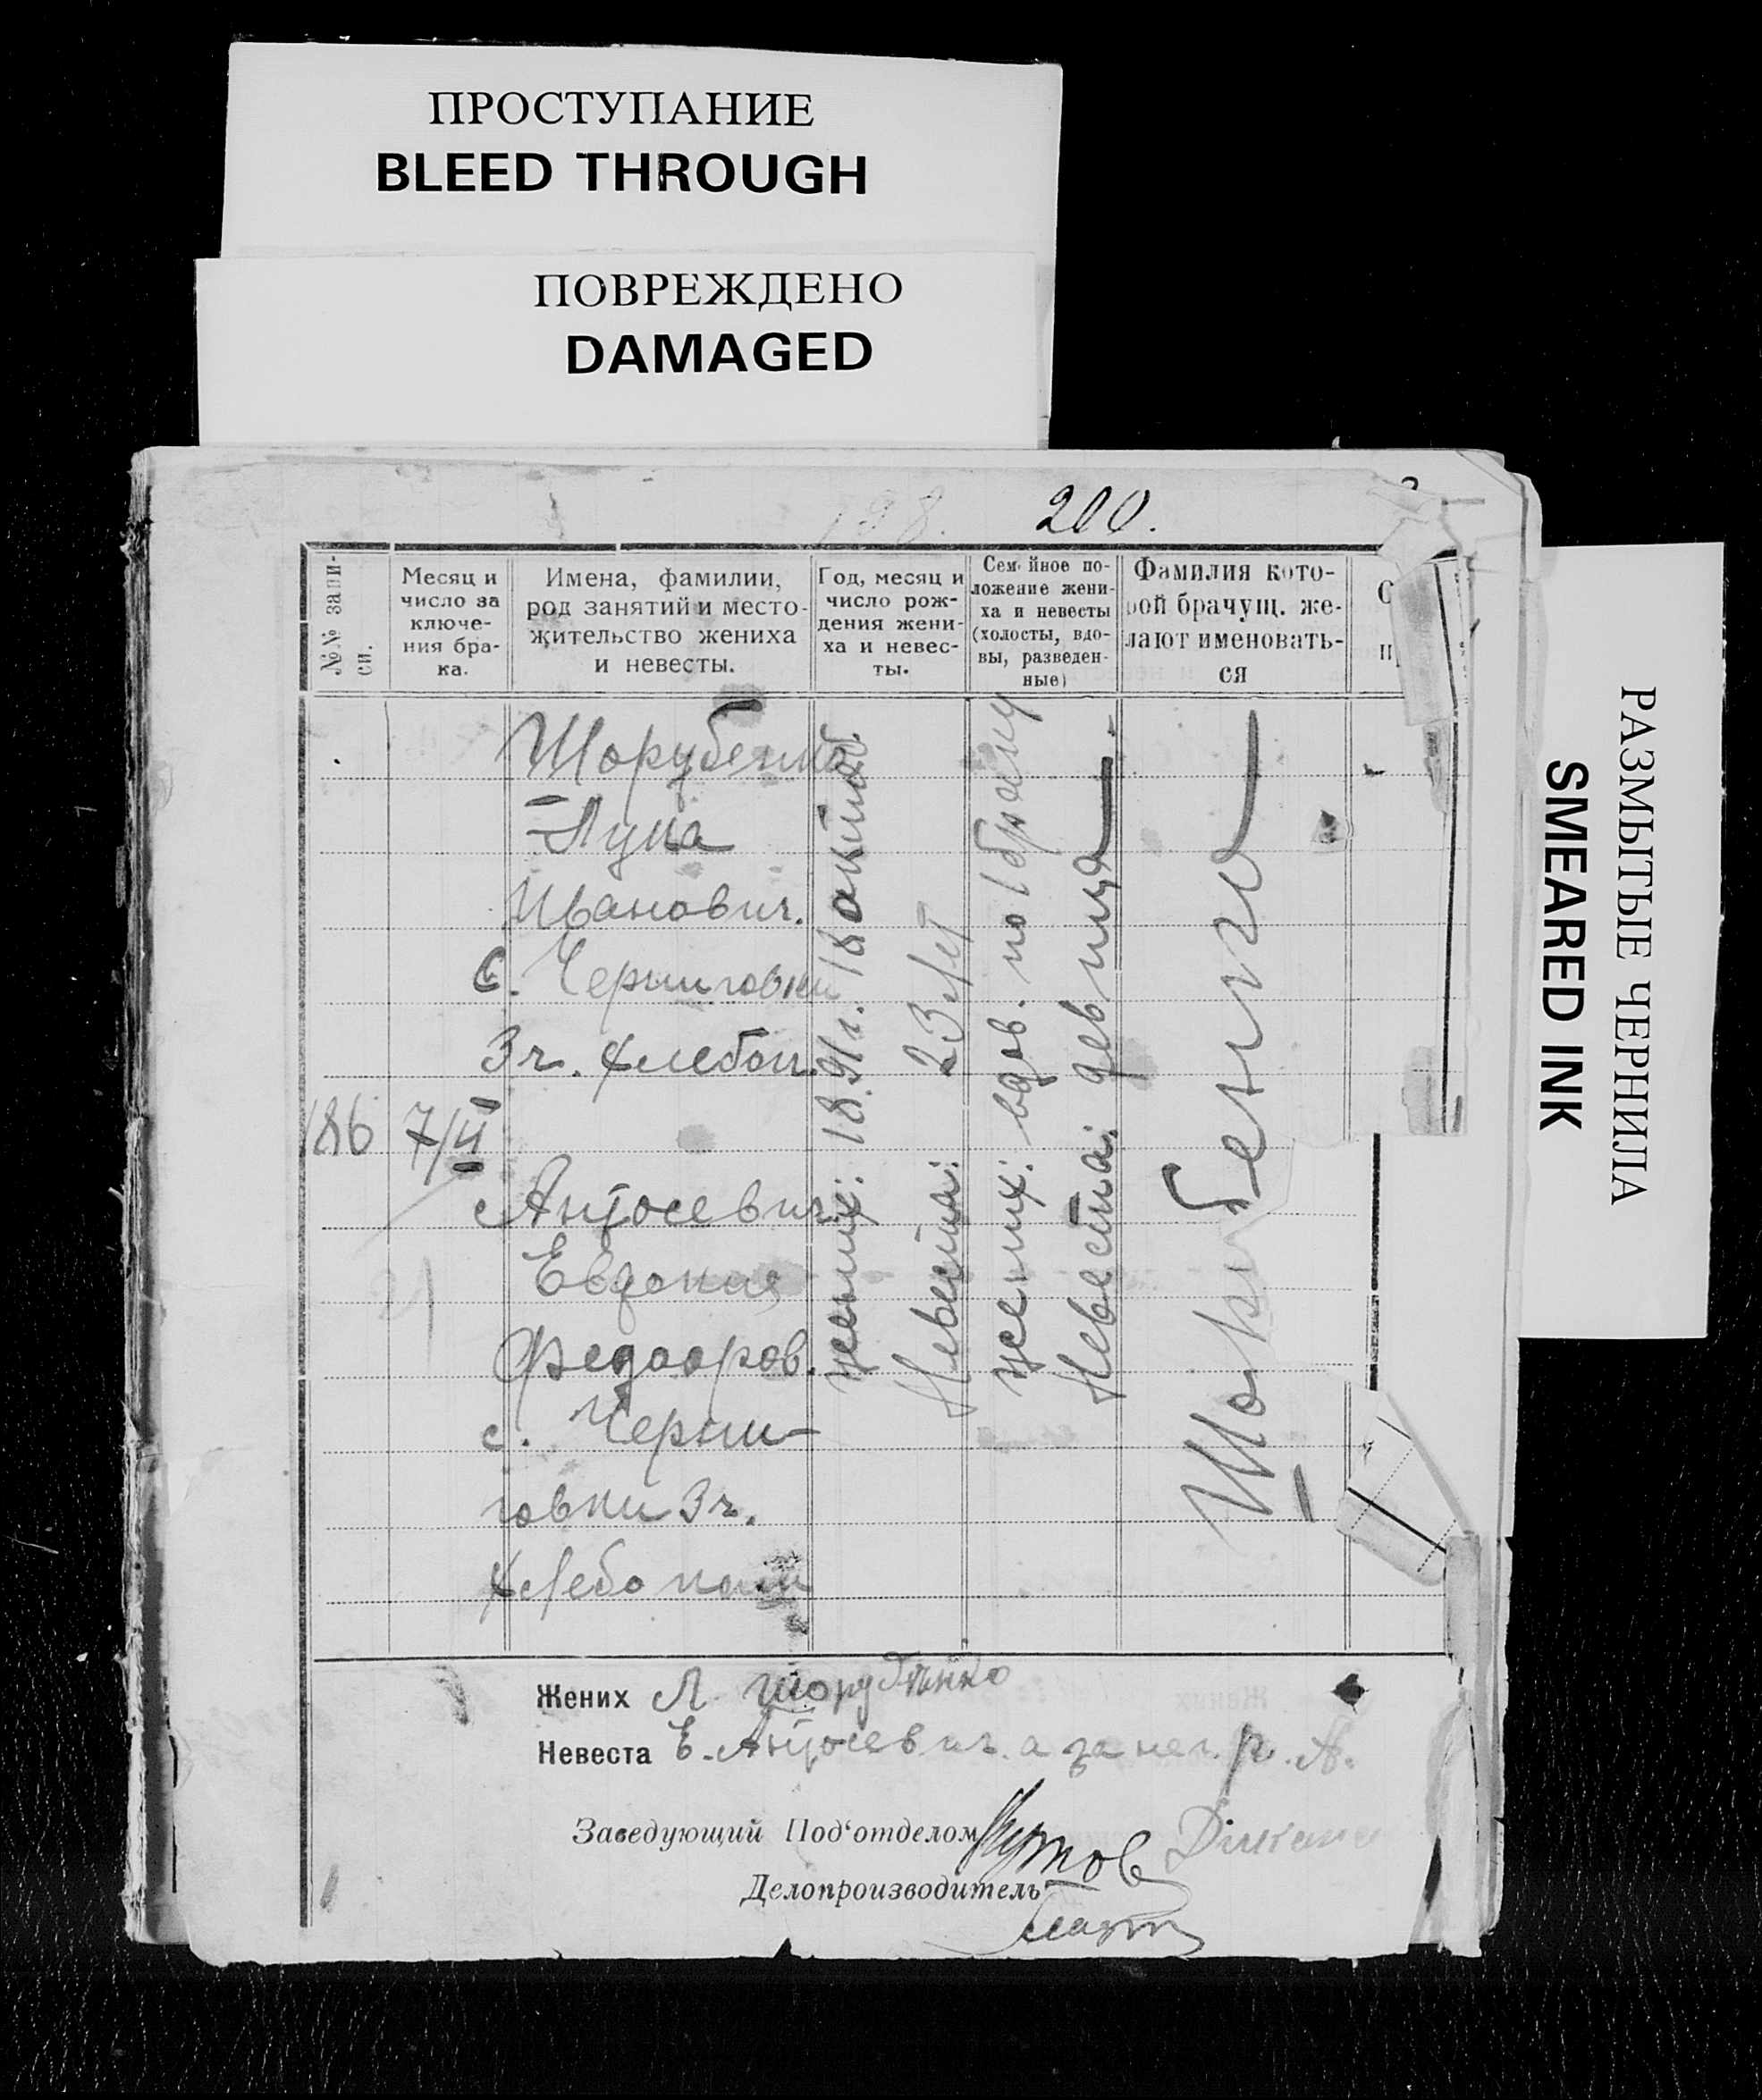 ПРОСТУПАНИЕ
BLEED THROUGH
ПОВРЕЖДЕНО
DAMAGED
РАЗМЫТЫЕ ЧЕРНИЛА
SMEARED INK
198. 200.
№№ запи-
си.
Месяц и
число за
ключе-
ния бра-
ка.
Имена, фамилии,
род занятий и место-
жительство жениха
и невесты.
Год, месяц и
число рож-
дения жени-
ха и невес-
ты.
Семейное по-
ложение жени-
ха и невесты
(холосты, вдо-
вы, разведен-
ные)
Фамилия кото-
рой брачущ. же-
лают именовать-
ся
186
7/II
Шорубенко
Лука
Иванович.
с. Черниговки
3 ч. хлебоп.
Антосевич
Евдокия
Федоров.
с. Черни-
говки 3 ч.
хлебопаш
жених: 18.91 г. 18 октяб.
Невеста: 23 лет
жених: вдов. по 1 браку
Невеста: девица
Шорубенко
Жених Л. Шорубенко
Невеста Е. Антосевич. а за нег. р.
Заведующий Под'отделом
Делопроизводитель